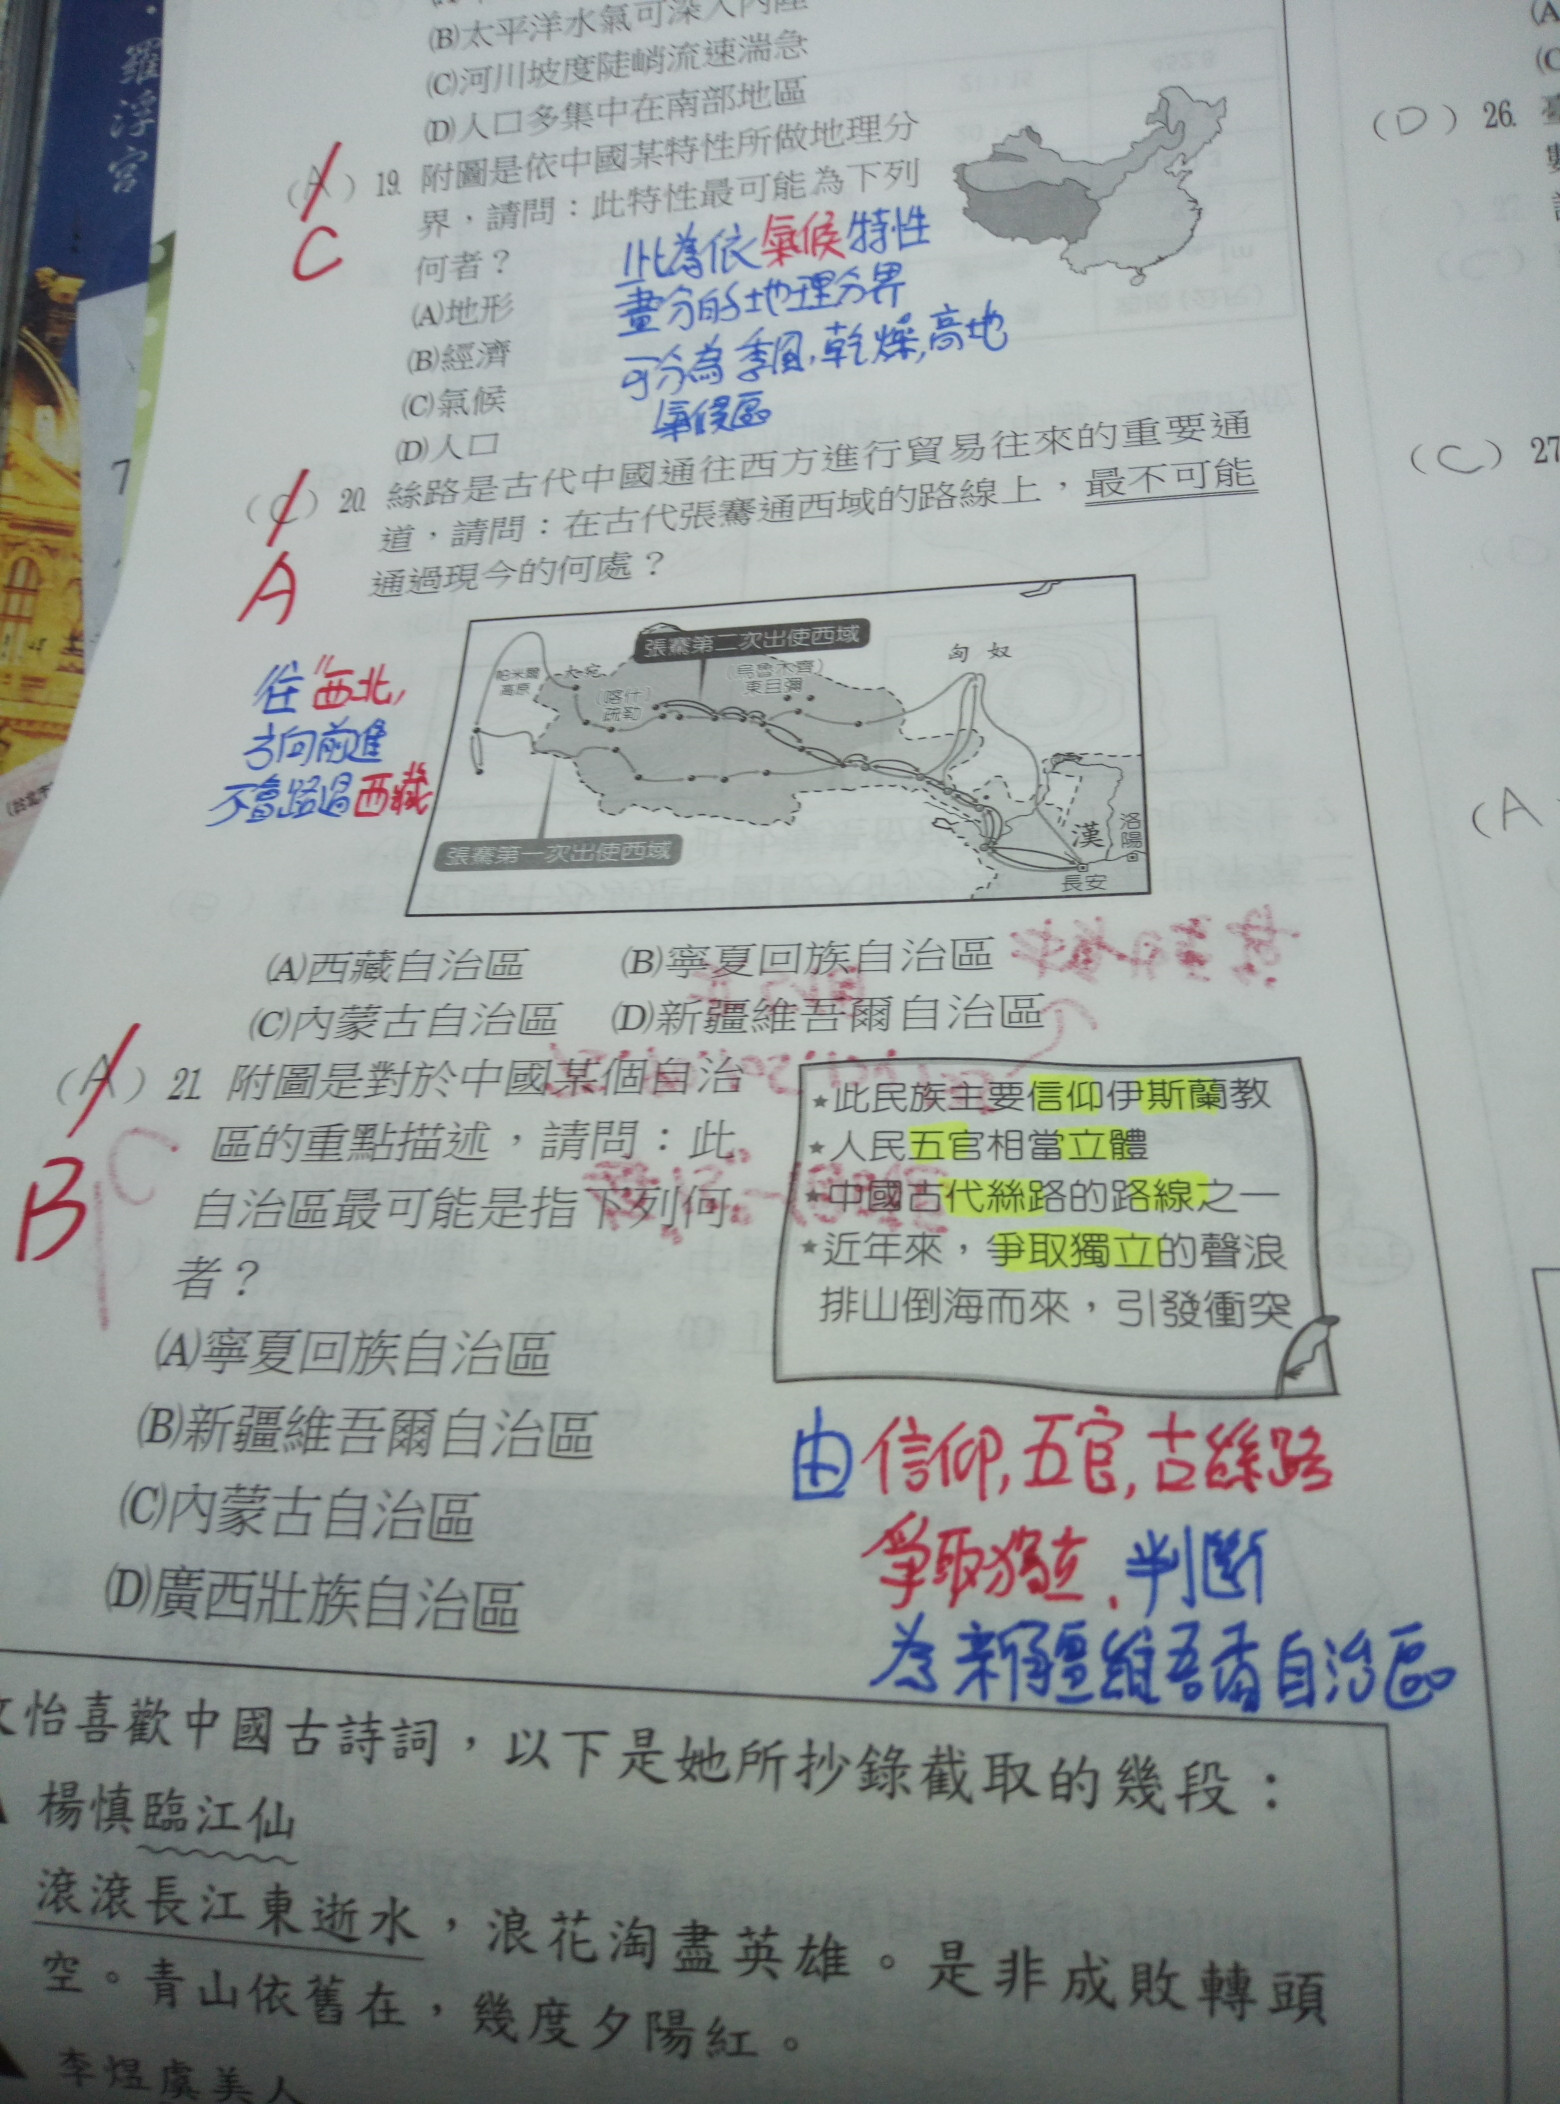 羅浮宮
(B)太平洋水氣可深入內陸
(C)河川坡度陡峭流速湍急
(D)人口多集中在南部地區
(A) 19. 附圖是依中國某特性所做地理分
界，請問：此特性最可能為下列
何者？
C
(A)地形
(B)經濟
(C)氣候
(D)人口
此為依氣候特性
畫分的地理分界
可分為季風,乾燥,高地
氣候區
(C) 20. 絲路是古代中國通往西方進行貿易往來的重要通
道，請問：在古代張騫通西域的路線上，最不可能
通過現今的何處？
A
往"西北"
方向前進
不會路過西藏
張騫第二次出使西域
匈奴
帕米爾
高原
大宛
(喀什)
疏勒
(烏魯木齊)
東且彌
張騫第一次出使西域
漢
洛陽
長安
(A)西藏自治區 (B)寧夏回族自治區
(C)內蒙古自治區 (D)新疆維吾爾自治區
(A) 21. 附圖是對於中國某個自治
區的重點描述，請問：此
自治區最可能是指下列何
者？
B
(A)寧夏回族自治區
(B)新疆維吾爾自治區
(C)內蒙古自治區
(D)廣西壯族自治區
★此民族主要信仰伊斯蘭教
★人民五官相當立體
★中國古代絲路的路線之一
★近年來，爭取獨立的聲浪
排山倒海而來，引發衝突
由信仰,五官,古絲路
爭取獨立,判斷
為新疆維吾爾自治區
怡喜歡中國古詩詞，以下是她所抄錄截取的幾段：
楊慎臨江仙
滾滾長江東逝水，浪花淘盡英雄。是非成敗轉頭
空。青山依舊在，幾度夕陽紅。
李煜虞美人
(D) 26.
(C) 27
(A